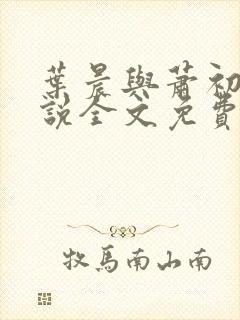 葉晨與蕭初
說全文免費
牧馬南山南